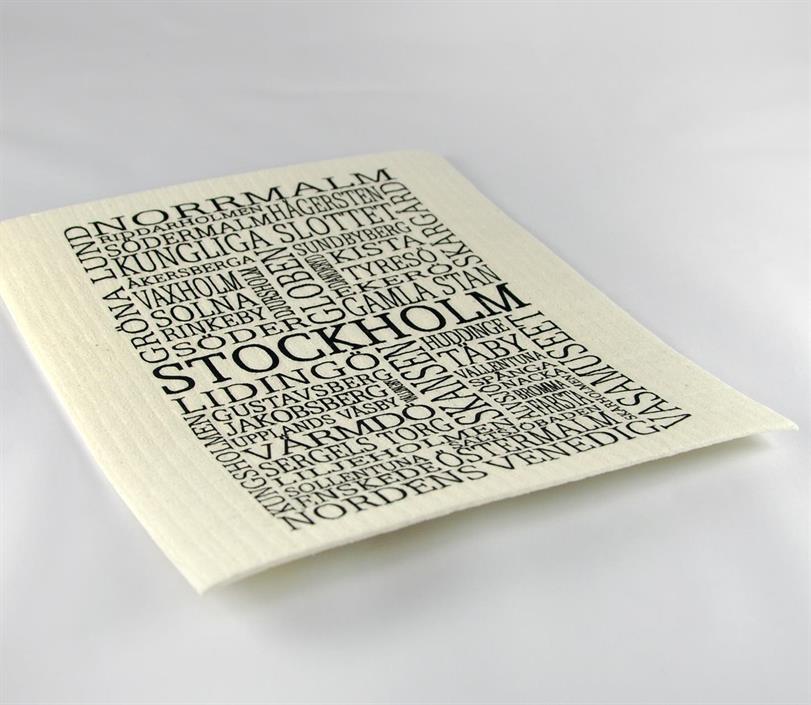 NORRMALM
RIDDARHOLMEN HÄGERSTEN
SÖDERMALM
KUNGLIGA SLOTTET
GRÖNA LUND
ÅKERSBERGA
SUNDBYBERG
SKÄRGÅRD
VAXHOLM
GLOBEN
KISTA
SOLNA
TYRESÖ
RINKEBY
EKERÖ
SÖDER
GAMLA STAN
STOCKHOLM
LIDINGÖ
HUDDINGE
GUSTAVSBERG
SKANSEN
TÄBY
JAKOBSBERG
VALLENTUNA
UPPLANDS VÄSBY
SPÅNGA
NACKA
VASAMUSEET
VÄRMDÖ
BROMMA
SERGELS TORG
FARSTA
KUNGSHOLMEN
LILJEHOLMEN
SOLLENTUNA
ENSKEDE
ÖSTERMALM
NORDENS VENEDIG